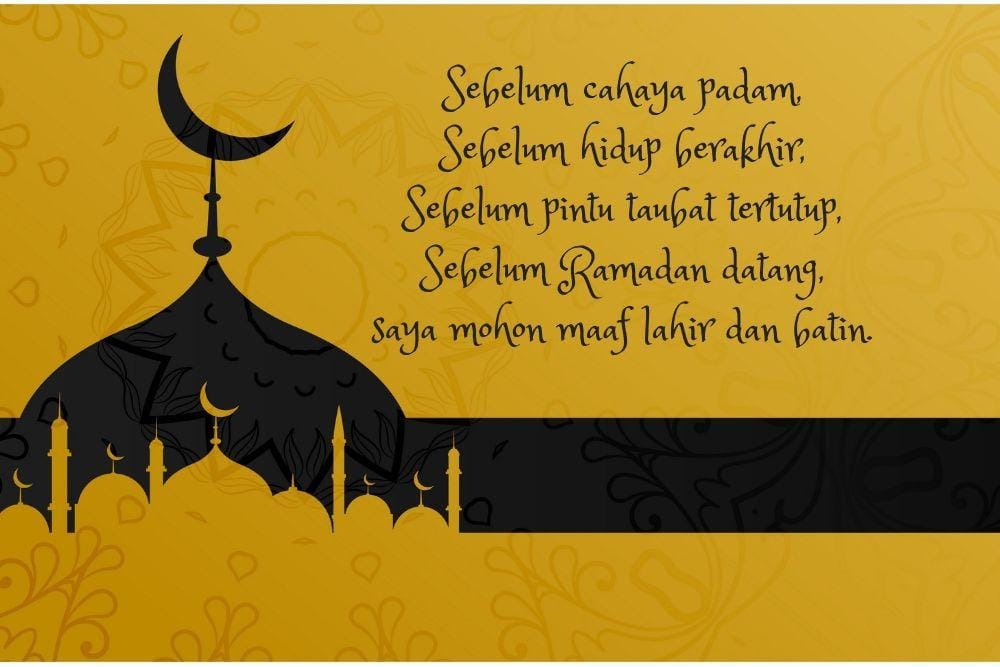 Sebelum cahaya padam,
Sebelum hidup berakhir,
Sebelum pintu taubat tertutup,
Sebelum Ramadan datang,
saya mohon maaf lahir dan batin.